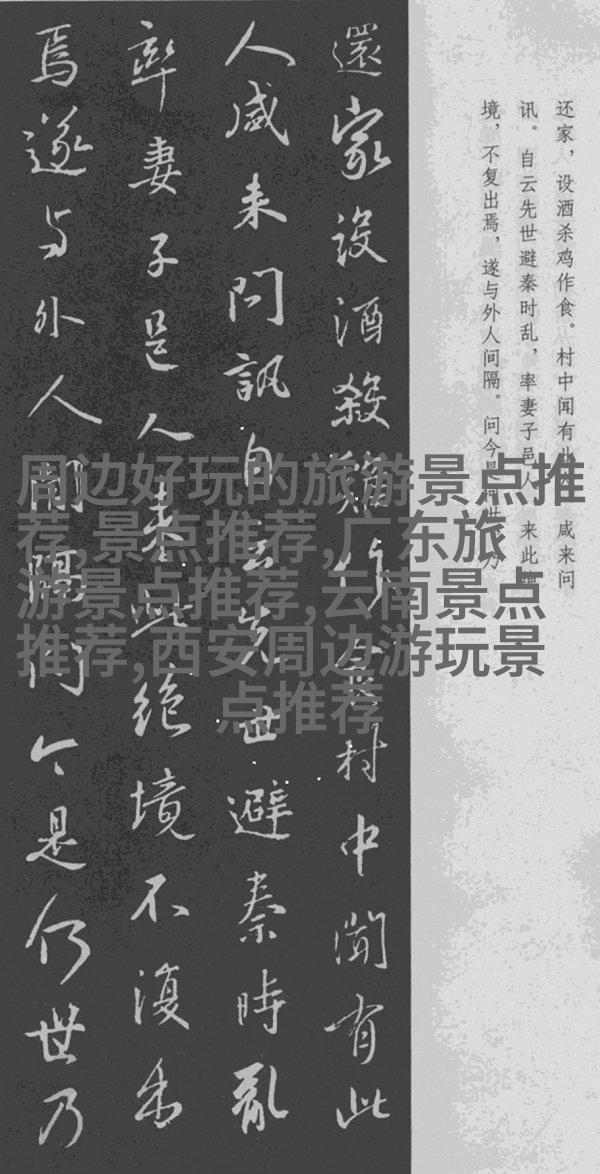 还家，设酒杀鸡作食。村中闻有此人，咸来问
讯。自云先世避秦时乱，率妻子邑人来此绝
境，不复出焉，遂与外人间隔。问今是何世，乃
還家設酒殺鷄作食村中聞有此
人咸来問訊自云先世避秦時亂
率妻子邑人来此絶境不復出
焉遂与外人間隔問今是何世乃
周边好玩的旅游景点推
荐,景点推荐,广东旅
游景点推荐,云南景点
推荐,西安周边游玩景
点推荐